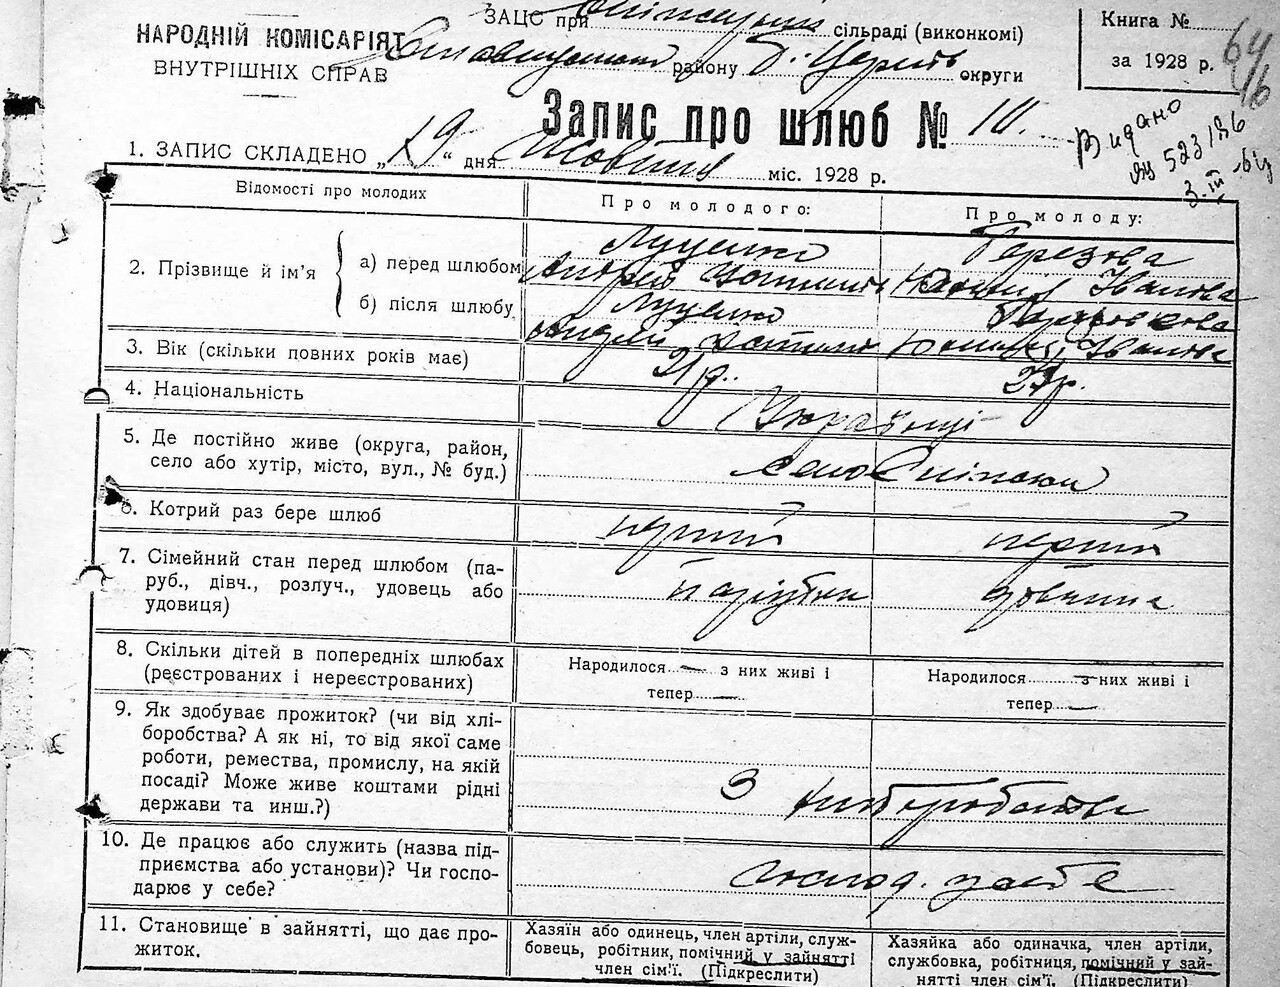 НАРОДНІЙ КОМІСАРІЯТ
ВНУТРІШНІХ СПРАВ
ЗАЦС при сільраді (виконкомі)
району Б. Церків округи
Книга №
за 1928 р.
64
16
Запис про шлюб № 10.
Видано
523186
1. ЗАПИС СКЛАДЕНО „19" дня Жовтня міс. 1928 р.
Відомості про молодих
Про молодого:
Про молоду:
2. Прізвище й ім'я
а) перед шлюбом
Луценко
Андрій
Іванова
б) після шлюбу
Луценко
Андрей
Іванова
3. Вік (скільки повних років має)
21 р.
23 р.
4. Національність
Українці
5. Де постійно живе (округа, район,
село або хутір, місто, вул., № буд.)
село Сніжки
6. Котрий раз бере шлюб
перший
перший
7. Сімейний стан перед шлюбом (па-
руб., дівч., розлуч., удовець або
удовиця)
парубок
дівчина
8. Скільки дітей в попередніх шлюбах
(реєстрованих і нереєстрованих)
Народилося — з них живі і
тепер —
Народилося — з них живі і
тепер —
9. Як здобуває прожиток? (чи від хлі-
боробства? А як ні, то від якої саме
роботи, ремества, промислу, на якій
посаді? Може живе коштами рідні
держави та инш.?)
З хліборобства
10. Де працює або служить (назва під-
приємства або установи)? Чи госпо-
дарює у себе?
господ. у себе
11. Становище в зайнятті, що дає про-
житок.
Хазяїн або одинець, член артіли, служ-
бовець, робітник, помічний у зайнятті
член сім'ї. (Підкреслити)
Хазяйка або одиначка, член артіли,
службовка, робітниця, помічний у зай-
нятті член сім'ї. (Підкреслити)